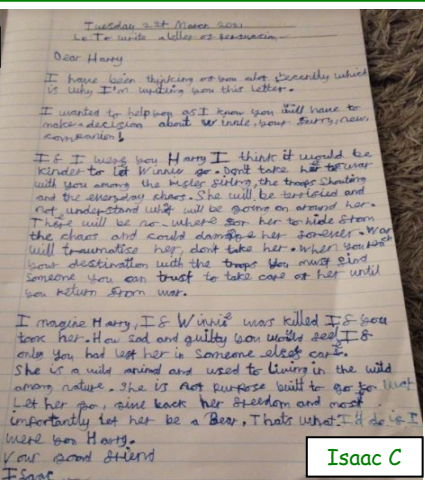 Tuesday 23rd March 2021
L.O To write a letter of persuasion
Dear Harry
I have been thinking of you alot recently which
is why I'm writing you this letter.
I wanted to help you as I know you will have to
make a decision about Winnie, your furry, new,
companion!
If I were you Harry I think it would be
kinder to let Winnie go. Dont take her to war
with you among the rifles firing, the troops shouting
and the everyday chaos. She will be terrified and
not understand what will be going on around her.
There will be no-where for her to hide from
the chaos and could damage her forever. War
will traumatise her, dont take her. When you
your destination with the troops you must find
someone you can trust to take care of her until
you return from war.
Imagine Harry, If Winnie was killed If you
took her. How sad and guilty you would feel If
only you had left her in someone else's care.
She is a wild animal and used to living in the wild
among nature. She is not purpose built to go to war
Let her go, give back her freedom and most
importantly let her be a Bear, Thats what I'd do if I
were you Harry.
Your good friend
Isaac
Isaac C